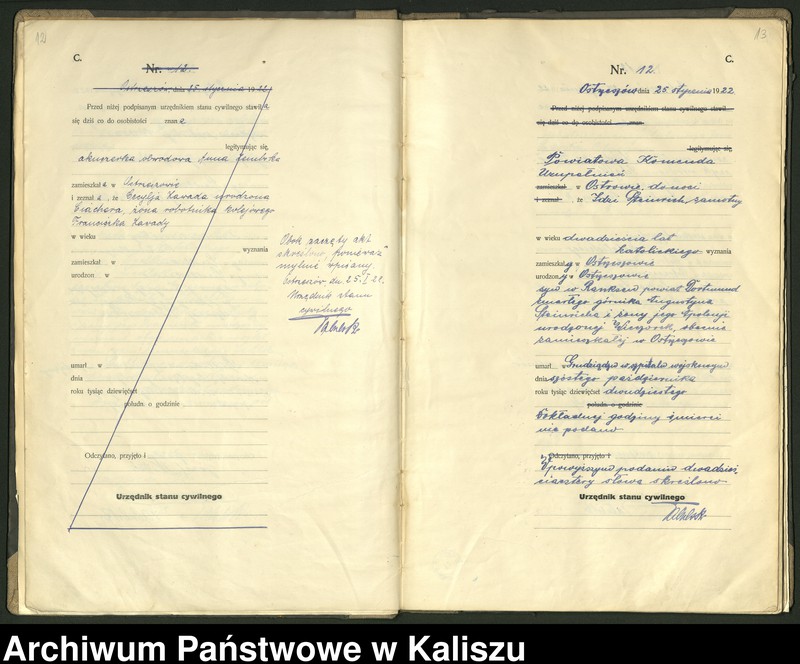 12
C.
Nr. 12.
Ostrzeszów, dn 25. stycznia 1922
Przed niżej podpisanym urzędnikiem stanu cywilnego stawiła
się dziś co do osobistości znana
legitymując się,
akuszerka obwodowa Anna
zamieszkała w Ostrzeszowie
i zeznała, że Cecylja Zawada urodzona
żona robotnika kolejowego
Franciszka Zawady
w wieku
wyznania
zamieszkał w
urodzon w
Obok zaczęty akt
skreślono, ponieważ
mylnie wpisany
Ostrzeszów, dn. 25. I 22.
Urzędnik stanu
cywilnego
umarł w
dnia
roku tysiąc dziewięćset
południ. o godzinie
Odczytano, przyjęto i
Urzędnik stanu cywilnego
13
C.
Nr. 12.
Ostrzeszów dnia 25. stycznia 1922
Przed niżej podpisanym urzędnikiem stanu cywilnego stawił
się dziś co do osobistości znan
legitymując się,
Powiatowa Komenda
Uzupełnień
zamieszkał w Ostrowie, donosi
i zeznał, że Idzi Steinrich, samotny
w wieku dwadzieścia lat
katolickiego wyznania
zamieszkały w Ostrzeszowie
urodzony w Ostrzeszowie
syn w powiat Dortmund
zmarłego górnika Augustyna
Steinricha i żony jego Apolonji
urodzonej obecnie
zamieszkałej w Ostrzeszowie
umarł w Grudziądzu w szpitalu wojskowym
dnia szóstego października
roku tysiąc dziewięćset dwudziestego
południ. o godzinie
Dokładnej godziny śmierci
nie podano
Odczytano, przyjęto i
W powyższym podaniu dwadzie-
ściacztery słowa skreślono
Urzędnik stanu cywilnego
Archiwum Państwowe w Kaliszu